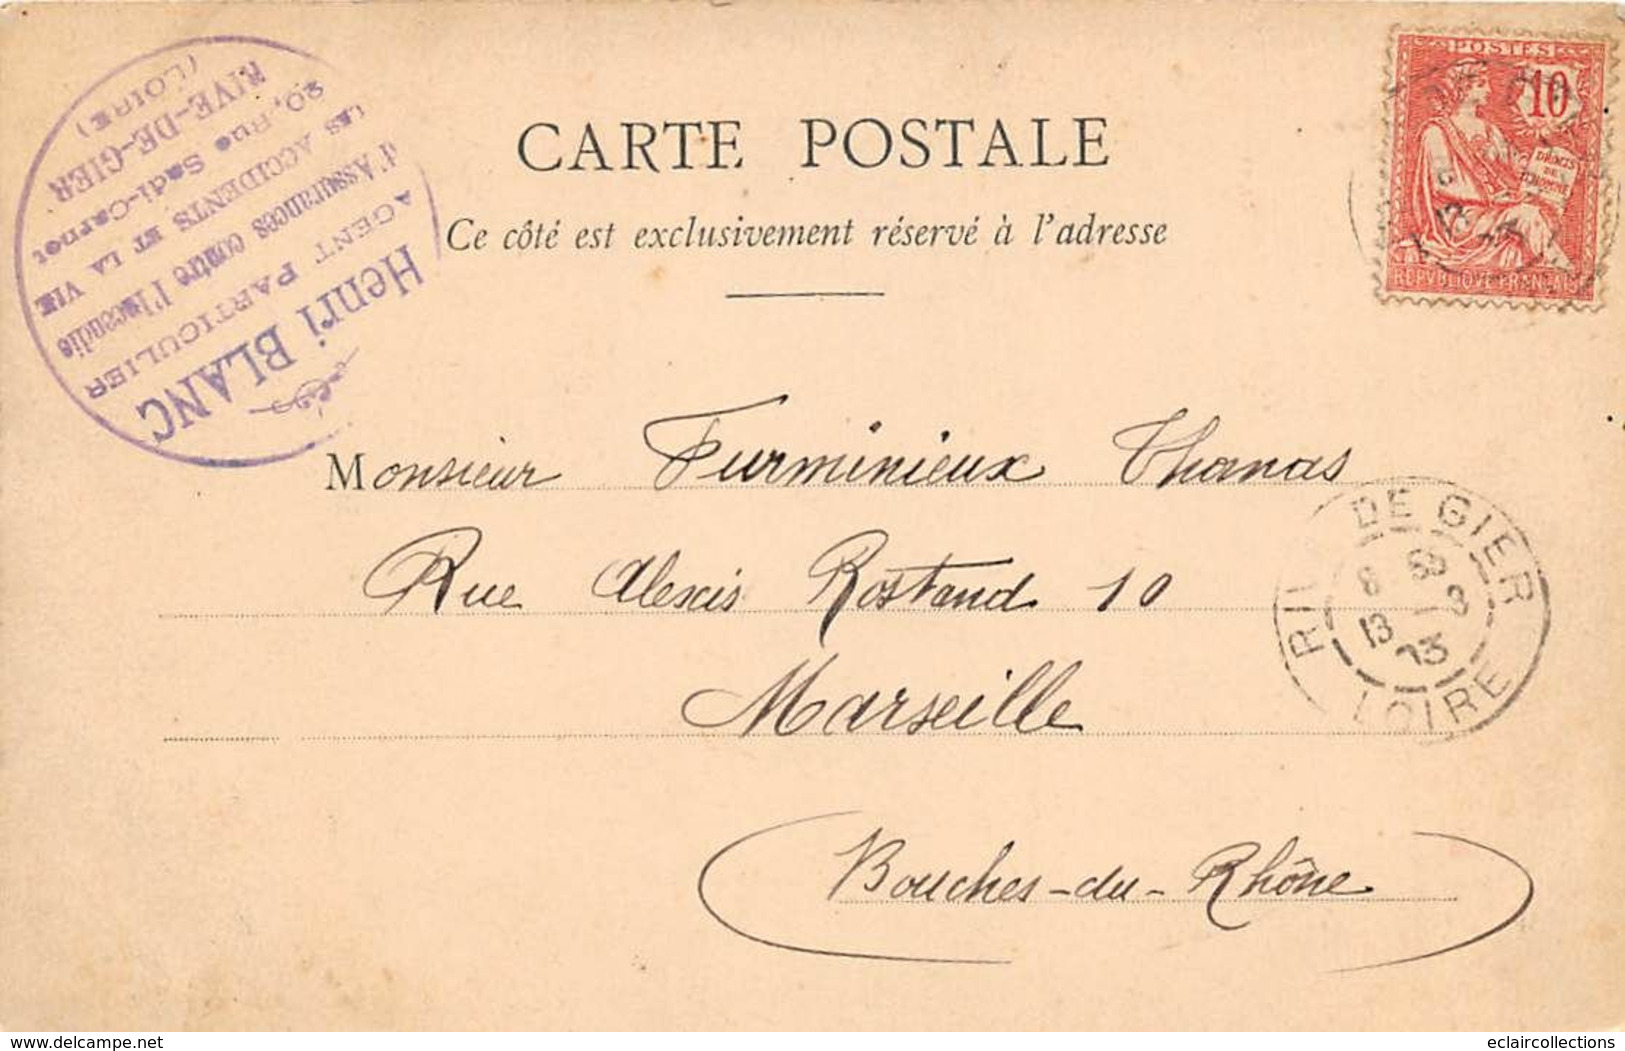 Henri BLANC
AGENT PARTICULIER
d'Assurances contre l'Incendie
LES ACCIDENTS ET LA VIE
20, Rue Sadi-Carnot
RIVE-DE-GIER
(LOIRE)
POSTES
10
DROITS
DE
L'HOMME
REPVBLIQVE FRANÇAISE
CARTE POSTALE
Ce côté est exclusivement réservé à l'adresse
Monsieur Furminieux Thomas
Rue Alexis Rostand 10
Marseille
Bouches-du-Rhône
DE GIER
13
LOIRE
www.delcampe.net
eclaircollections